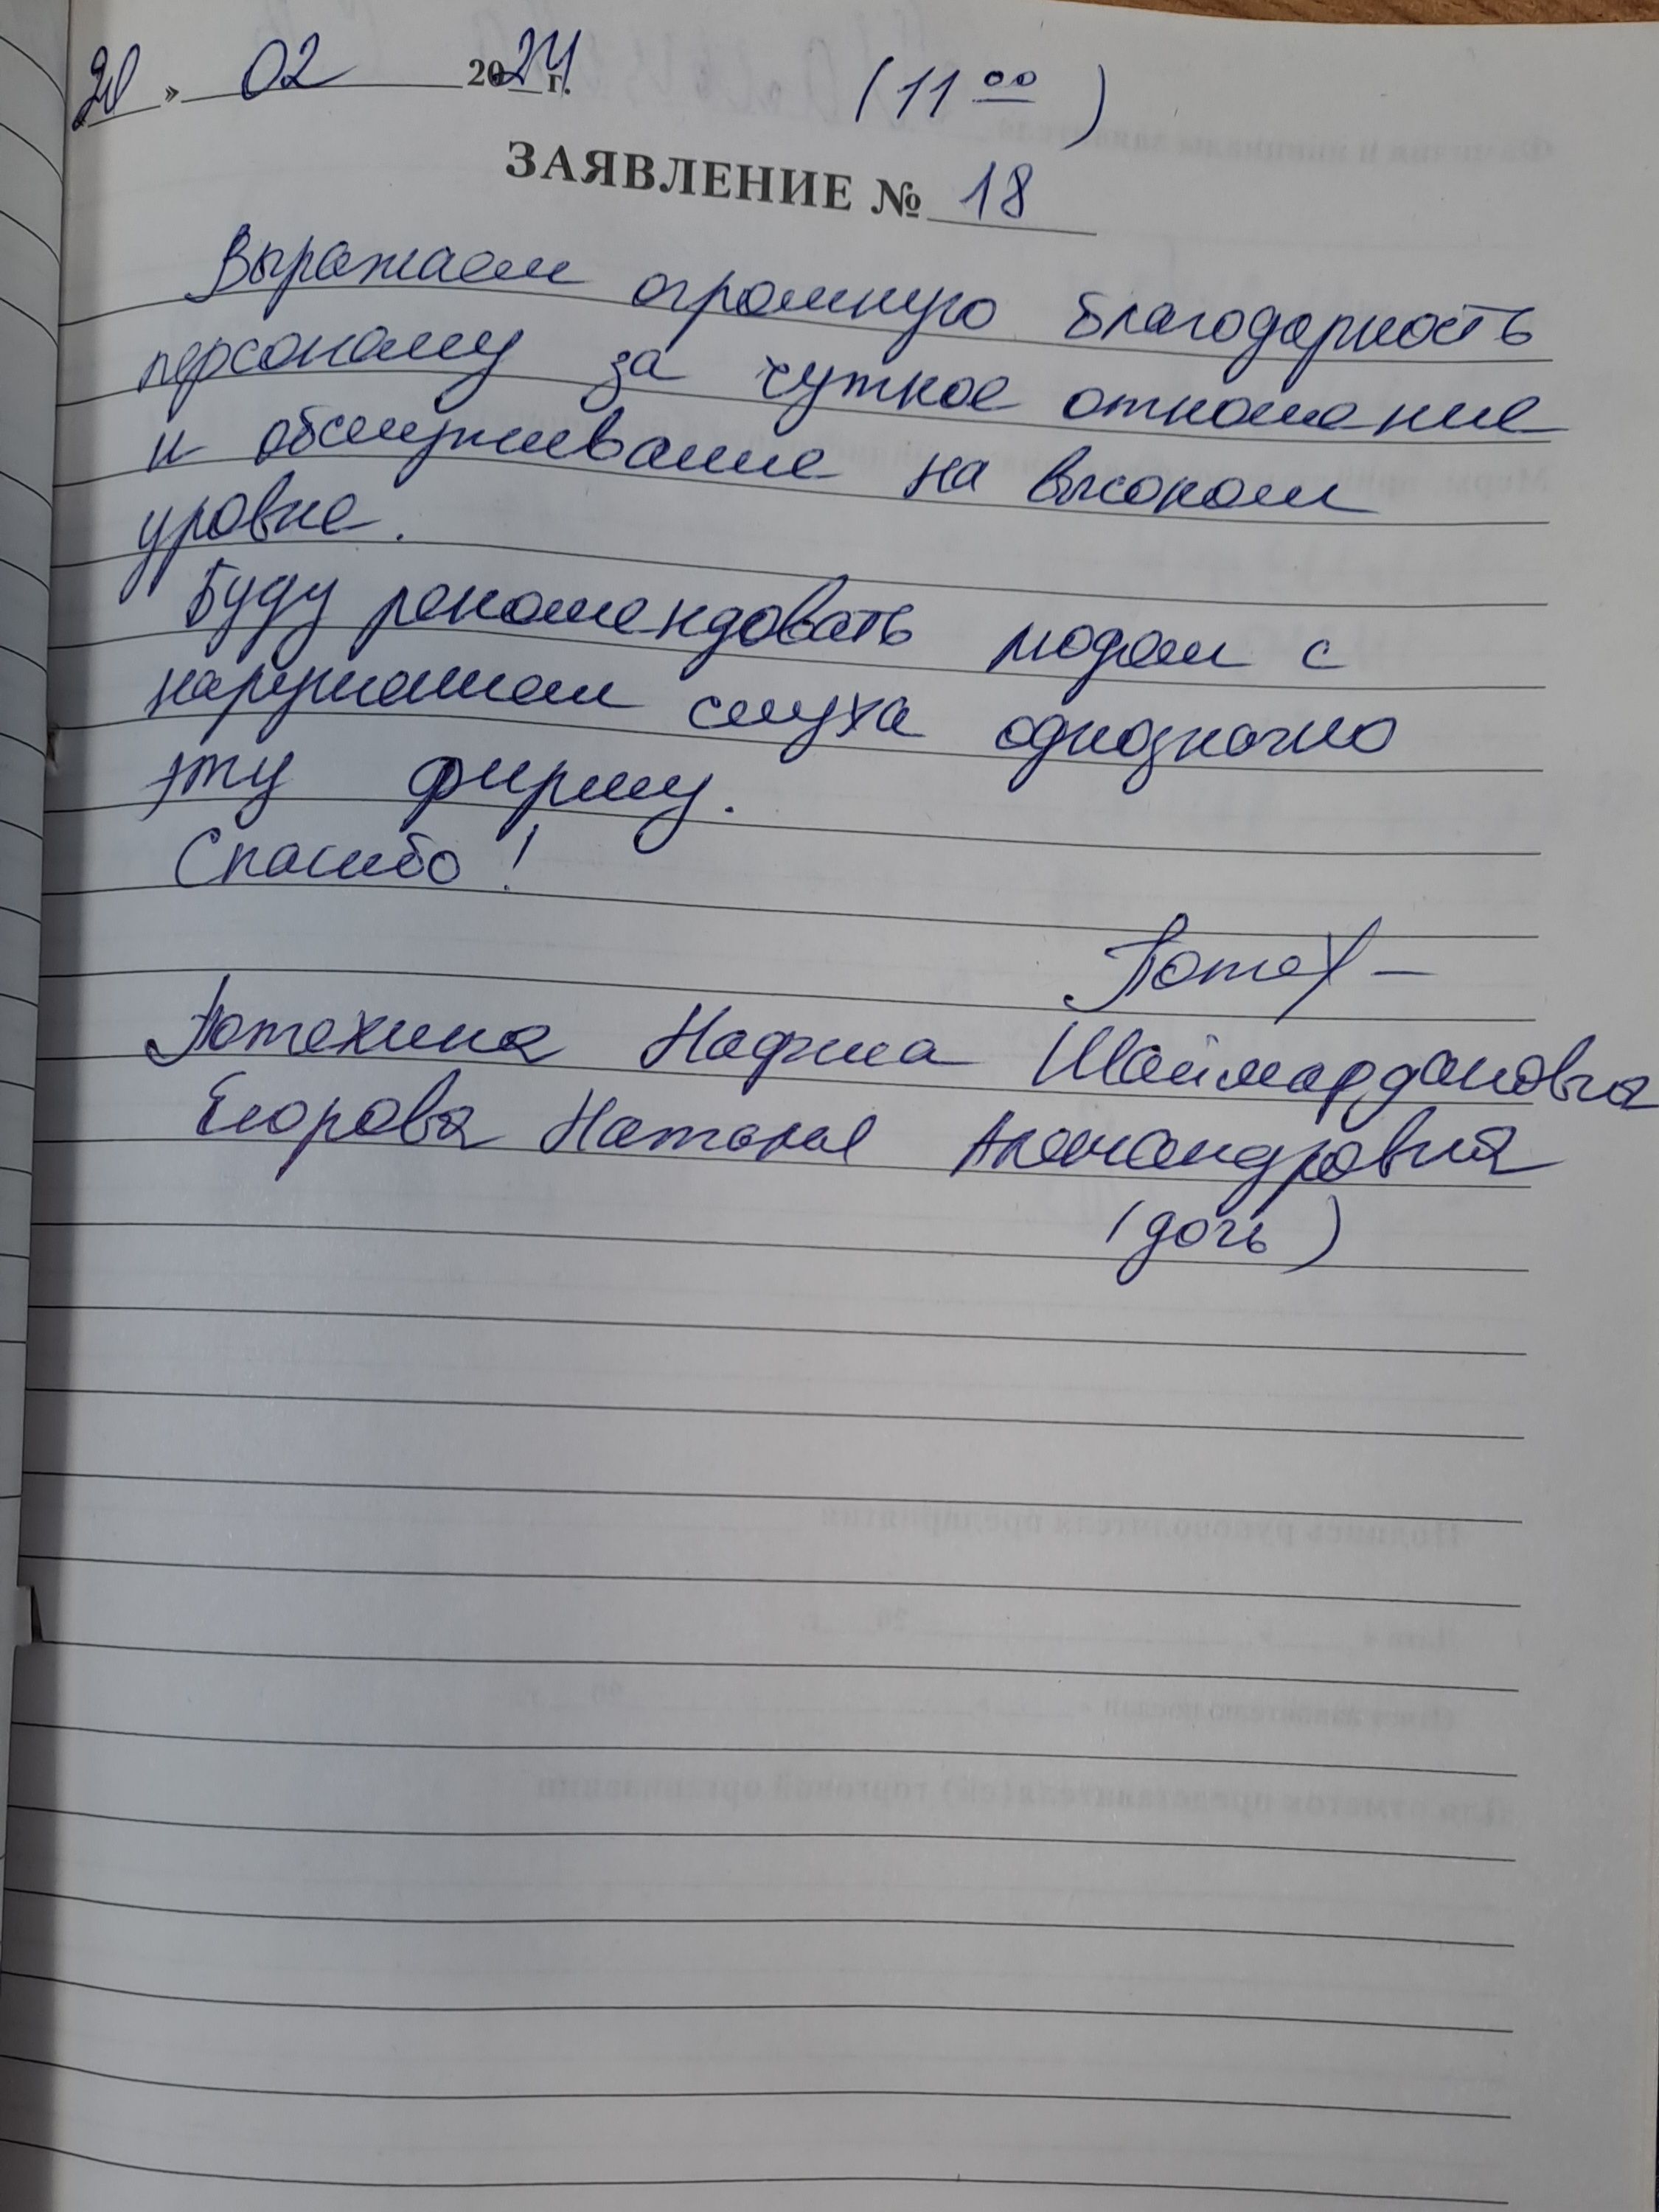 20 » 02 2024 г. (11 00)
ЗАЯВЛЕНИЕ № 18
Выражаем огромную благодарность
персоналу за чуткое отношение
и обслуживание на высоком
уровне.
Буду рекомендовать людям с
нарушением слуха однозначно
эту фирму.
Спасибо!
Потех
Потехина Нафиса Шаймардановна
Егорова Наталья Александровна
(дочь)